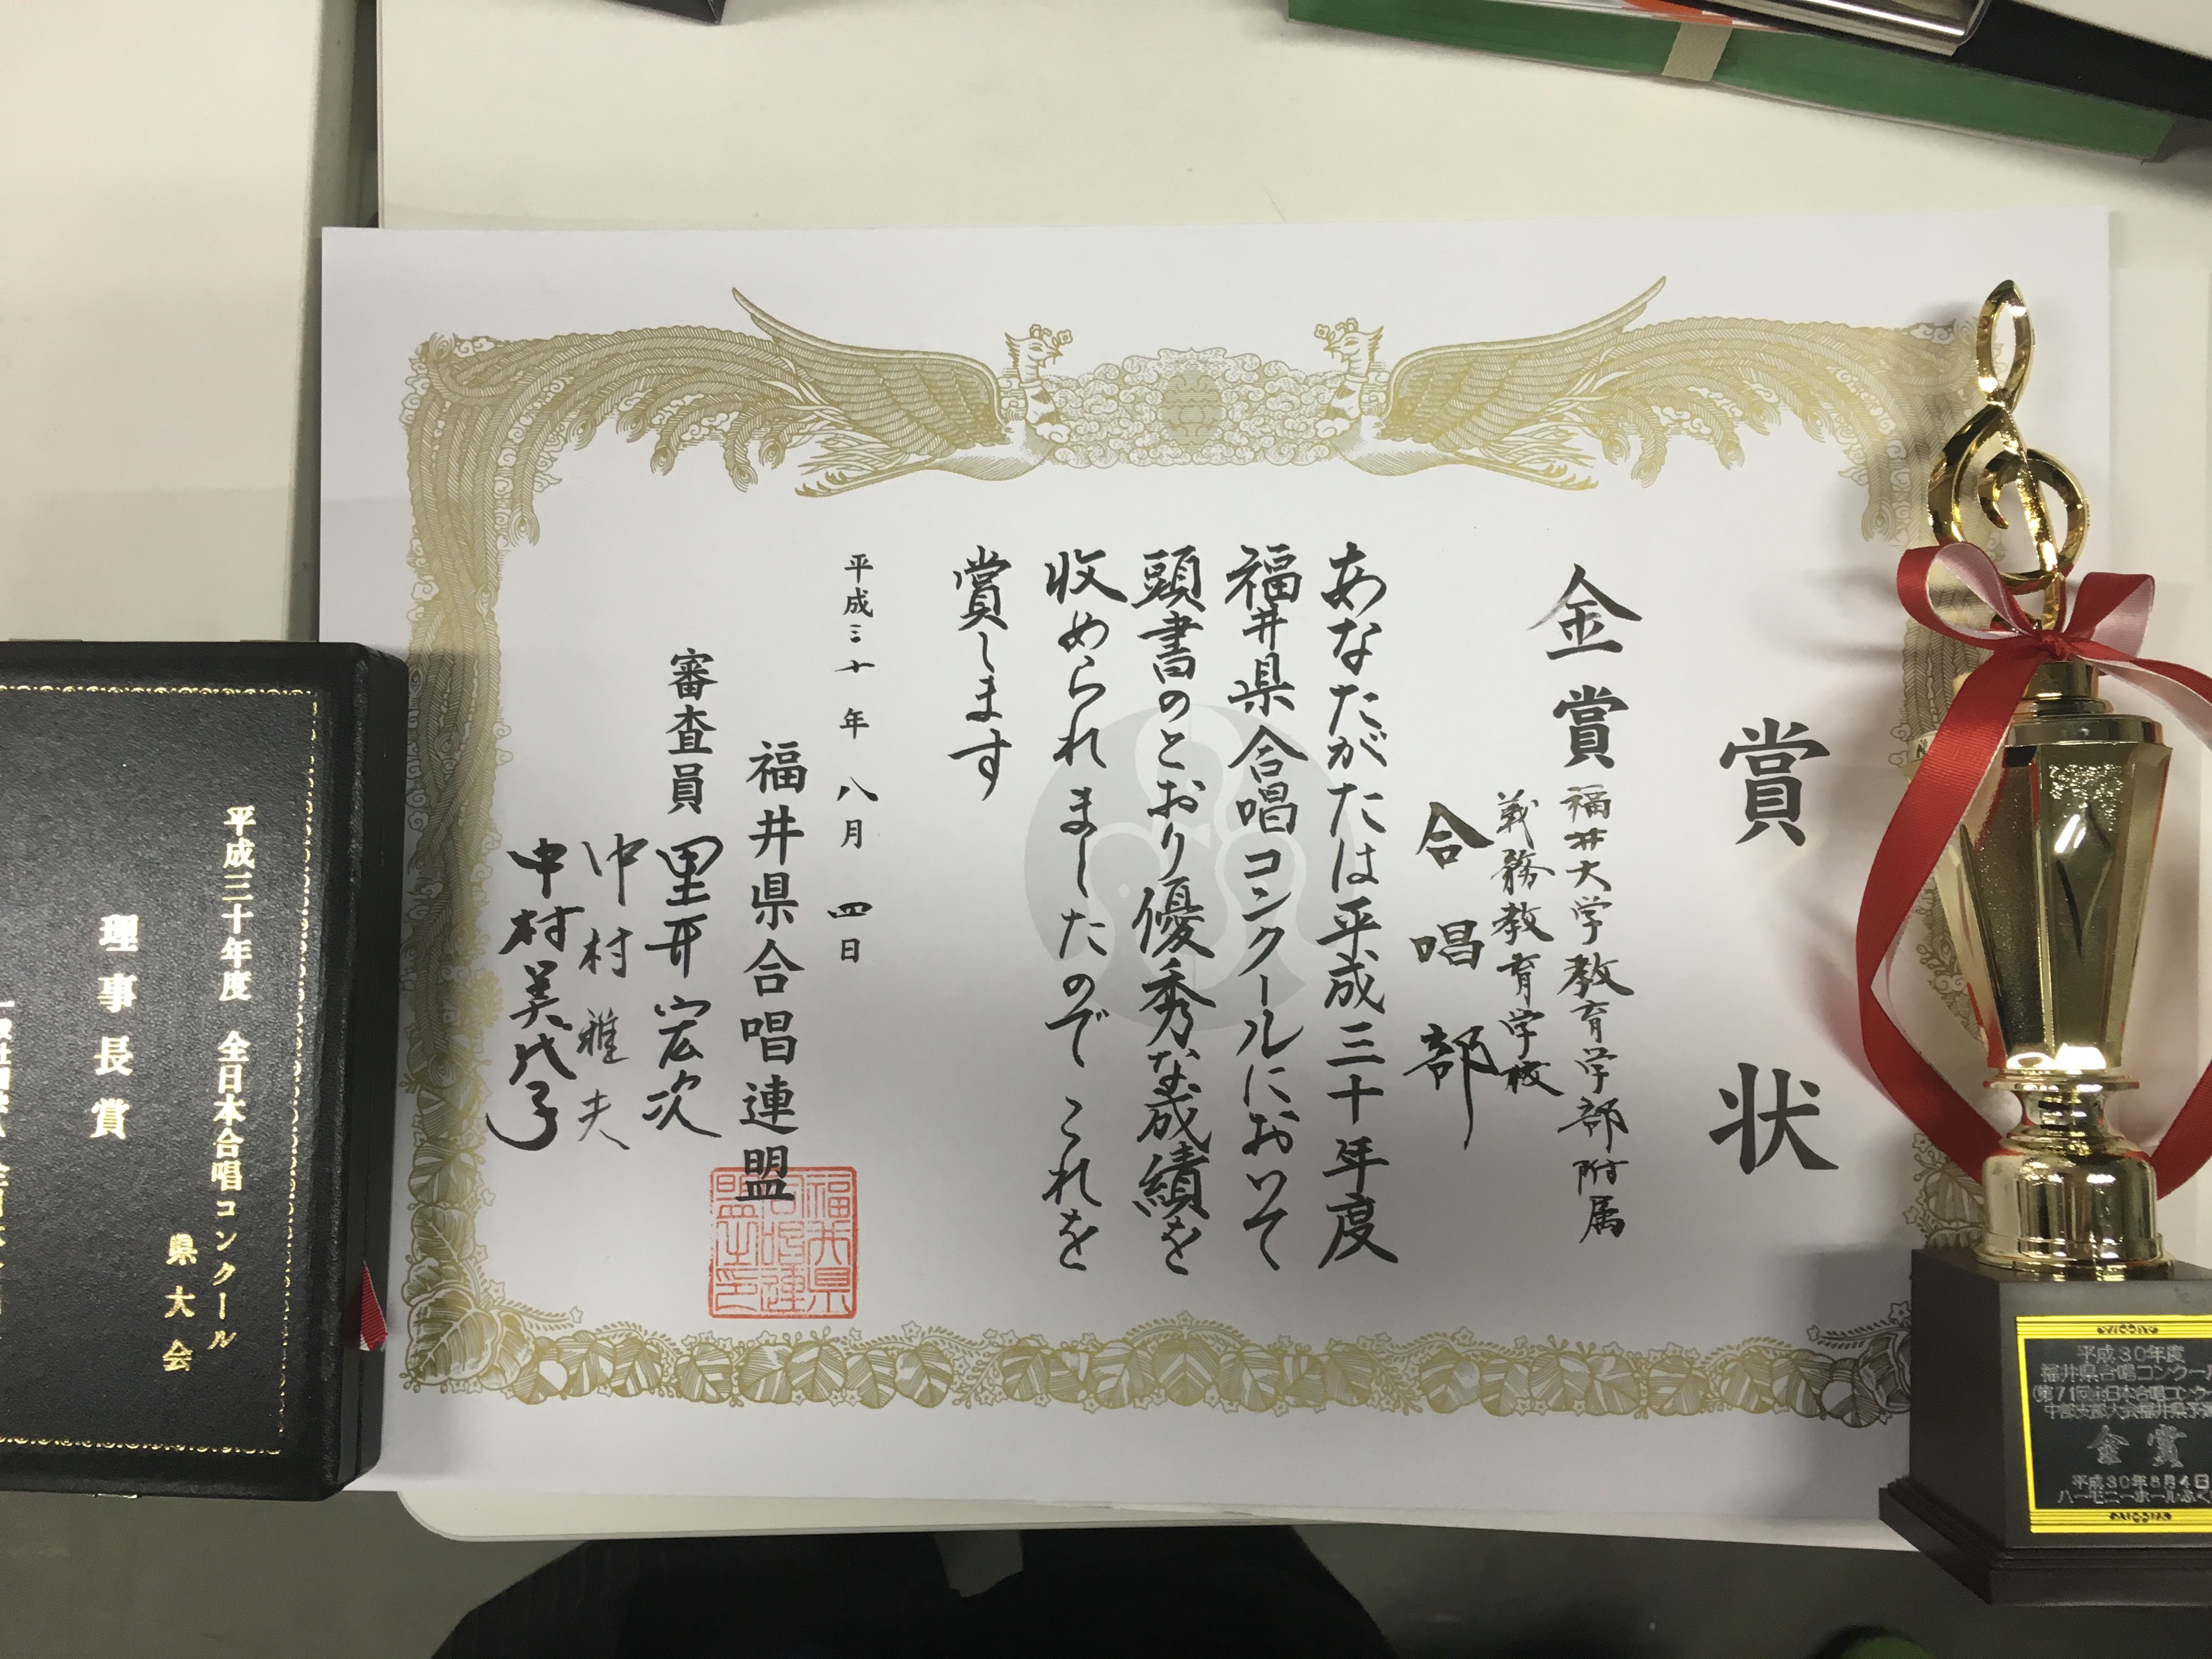 賞状
金賞
福井大学教育学部附属
義務教育学校
合唱部
あなたがたは平成三十年度
福井県合唱コンクールにおいて
頭書のとおり優秀な成績を
収められましたのでこれを
賞します
平成三十年八月四日
福井県合唱連盟
審査員 里井宏次
中村雅夫
中村美代子
福井県
合唱連
盟之印
平成三十年度 全日本合唱コンクール
県大会
理事長賞
平成30年度
福井県合唱コンクール
(第71回全日本合唱コンク
中部支部大会福井県予選
金賞
平成30年8月4日
ハーモニーホールふく